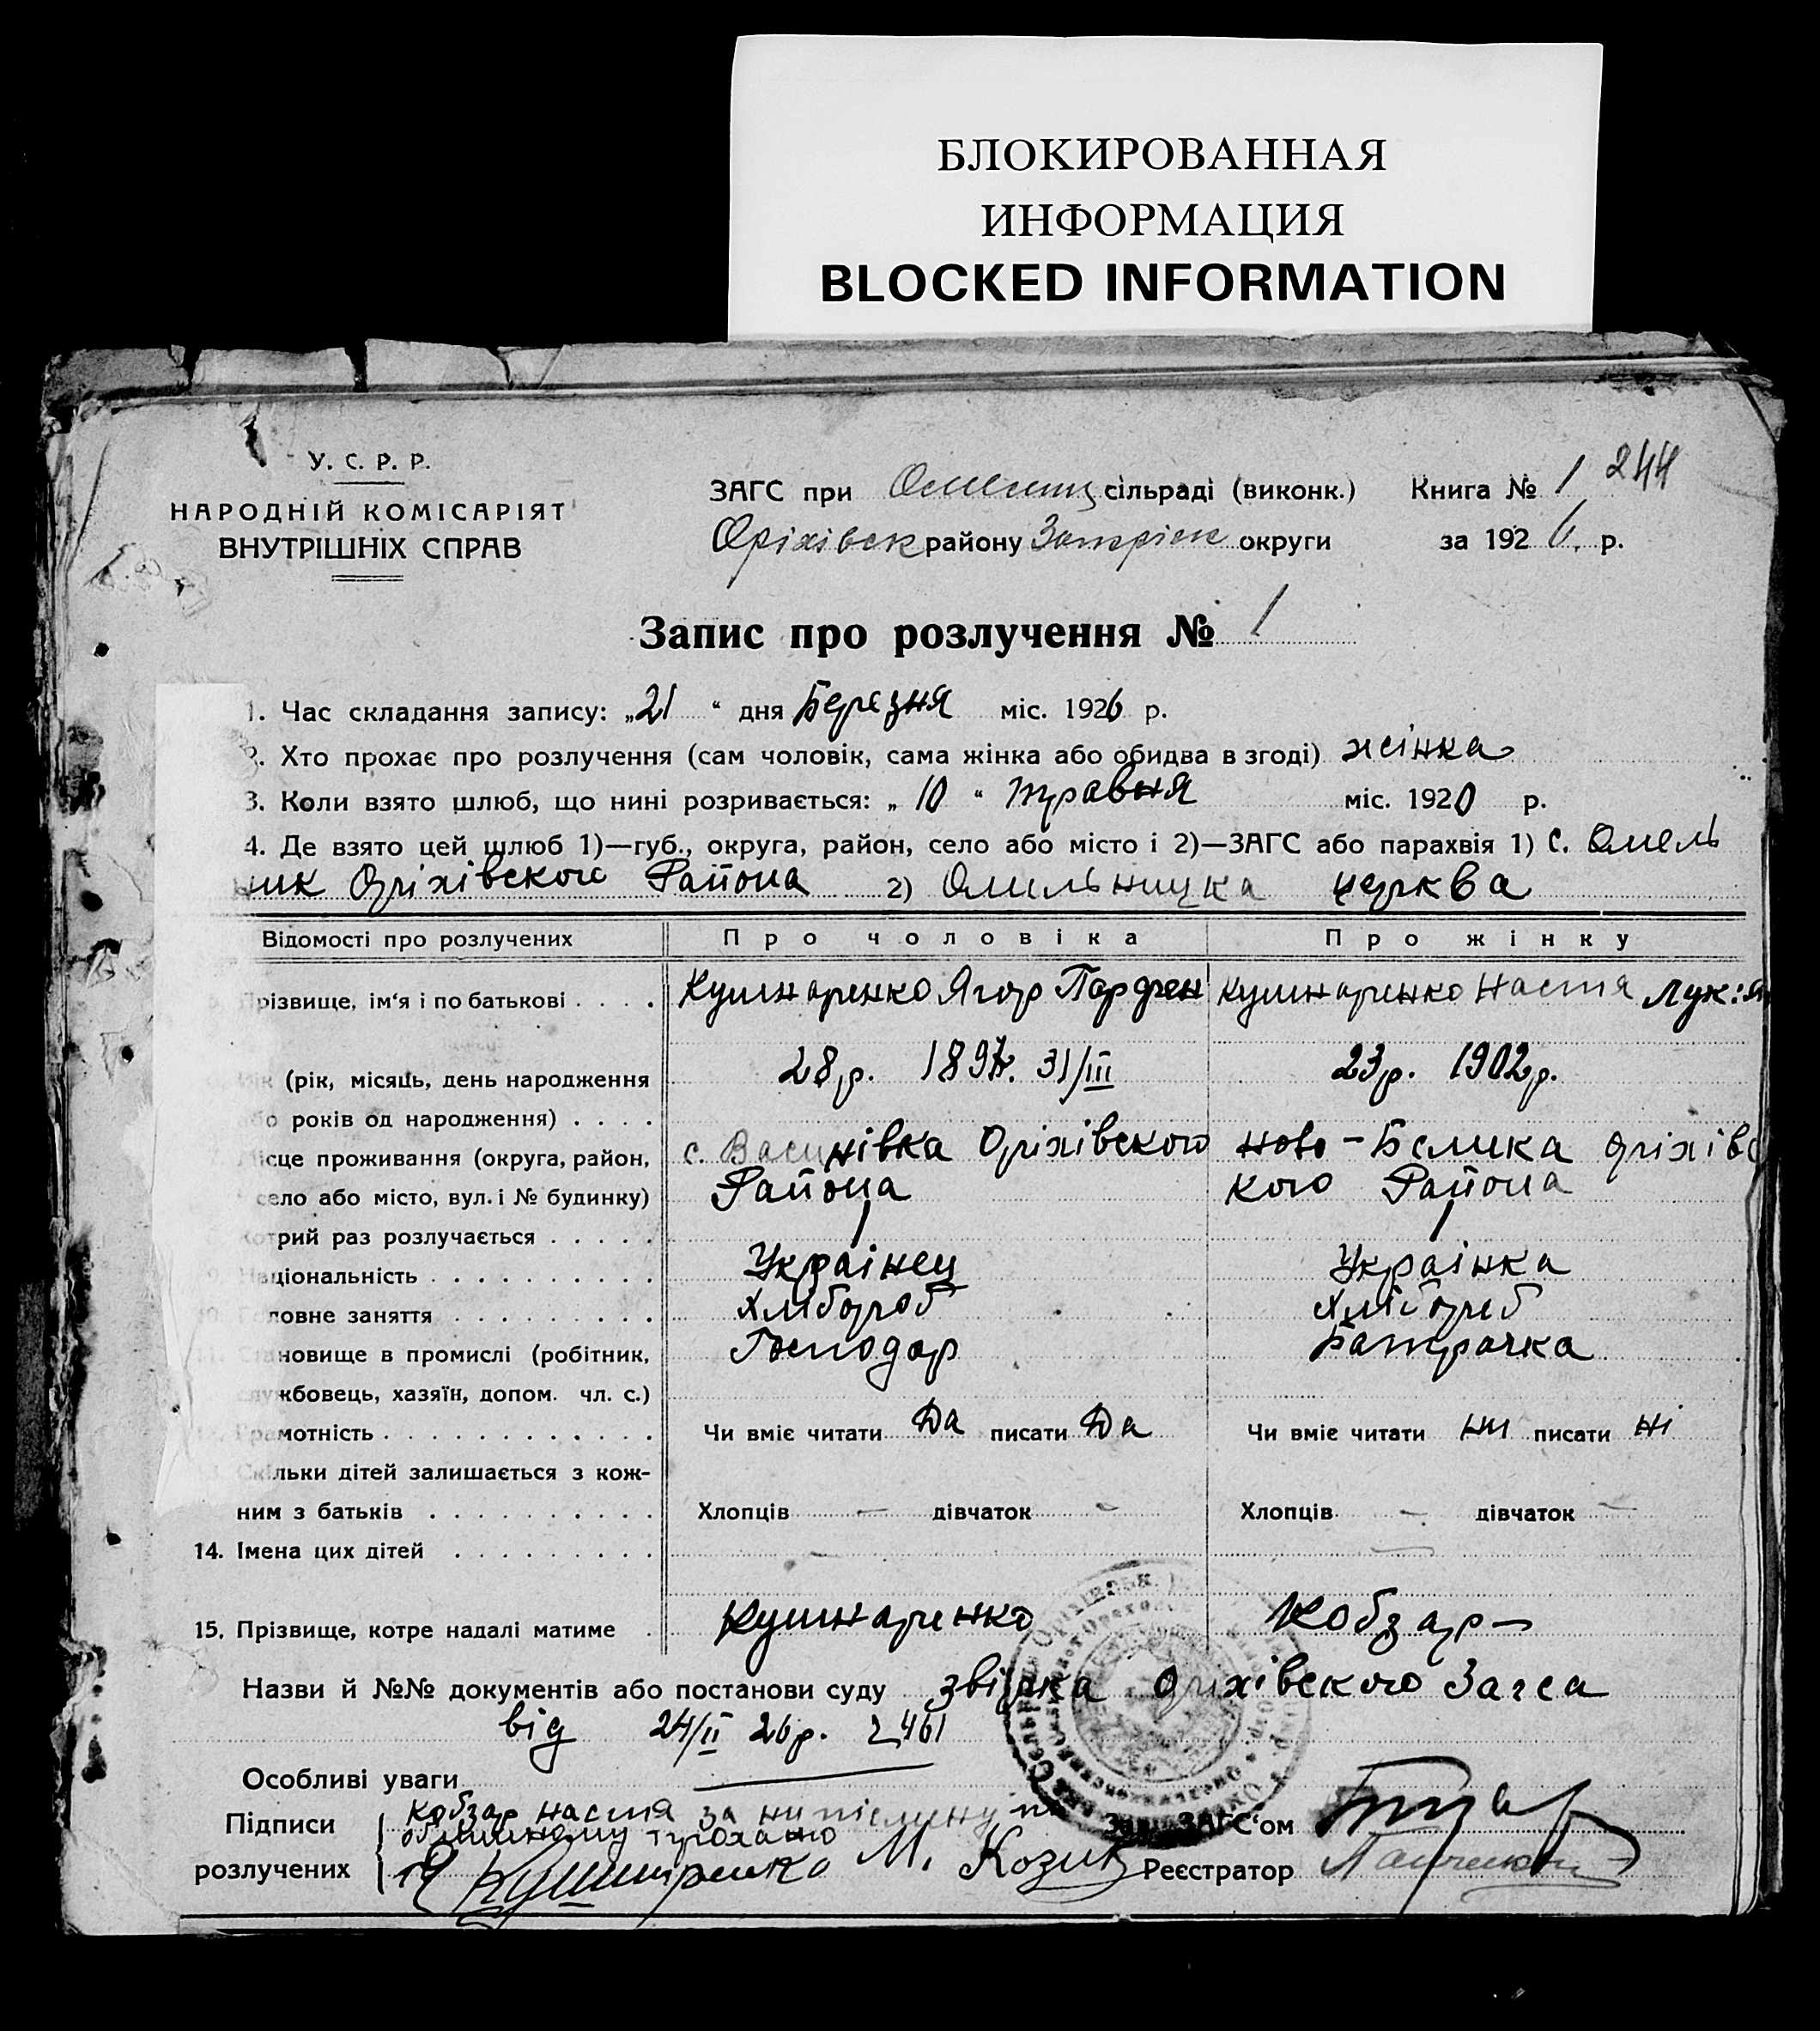 БЛОКИРОВАННАЯ
ИНФОРМАЦИЯ
BLOCKED INFORMATION
У. С. Р. Р.
НАРОДНІЙ КОМІСАРІЯТ
ВНУТРІШНІХ СПРАВ
244
ЗАГС при сільраді (виконк.) Книга № 1
Оріхівск району округи за 1926. р.
Запис про розлучення № 1
1. Час складання запису: „21 “ дня Березня міс. 1926 р.
2. Хто прохає про розлучення (сам чоловік, сама жінка або обидва в згоді) жінка
3. Коли взято шлюб, що нині розривається: „ 10 “ травня міс. 1920 р.
4. Де взято цей шлюб 1)—губ., округа, район, село або місто і 2)—ЗАГС або парахвія 1) С. Омель
ник Оріхівского Района 2) Омильницка церква
Відомості про розлучених Про чоловіка Про жінку
Прізвище, ім‘я і по батькові . . . . Кушнаренко Ягор Парфен Кушнаренко Настя Лук:я
(рік, місяць, день народження 28 р. 1897р. 31/III 23 р. 1902 р.
або років од народження) . . . .
Місце проживання (округа, район, с. Васинівка Оріхівского Ново-Белика Оріхівс
село або місто, вул. і № будинку) Района кого Района
Котрий раз розлучається . . . . . 1 1
9. Національність . . . . . . . . . . Украінец Украінка
10. Головне заняття . . . . . . . . . Хлібороб Хлібороб
Становище в промислі (робітник, Господар Батрачка
службовець, хазяїн, допом. чл. с.)
Грамотність . . . . . . . . . . . . Чи вміє читати Да писати Да Чи вміє читати ни писати ні
Скільки дітей залишається з кож-
ним з батьків . . . . . . . . . . Хлопців — дівчаток — Хлопців — дівчаток —
14. Імена цих дітей . . . . . . . . . — —
15. Прізвище, котре надалі матиме . Кушнаренко Кобзар—
Назви й №№ документів або постанови суду звірка Оріхівского Загса
від 24/II 26 р. 2461
Особливі уваги
Підписи Кобзар Настя за
розлучених Я Кушнаренко М. Козик
Зав. ЗАГС‘ом
Реєстратор